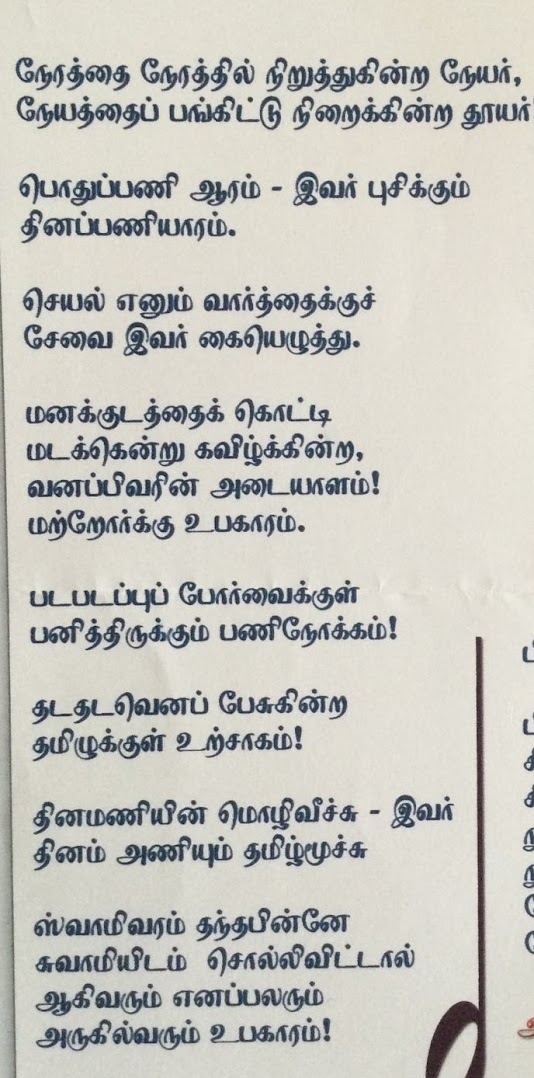 நேரத்தை நேரத்தில் நிறுத்துகின்ற நேயர்,
நேயத்தைப் பங்கிட்டு நிறைக்கின்ற தூயர்
பொதுப்பணி ஆரம் - இவர் புசிக்கும்
தினப்பணியாரம்.
செயல் எனும் வார்த்தைக்குச்
சேவை இவர் கையெழுத்து.
மனக்குடத்தைக் கொட்டி
மடக்கென்று கவிழ்க்கின்ற,
வனப்பிவரின் அடையாளம்!
மற்றோர்க்கு உபகாரம்.
படபடப்புப் போர்வைக்குள்
பனித்திருக்கும் பணிநோக்கம்!
தடதடவெனப் பேசுகின்ற
தமிழுக்குள் உற்சாகம்!
தினமணியின் மொழிவீச்சு - இவர்
தினம் அணியும் தமிழ்மூச்சு
ஸ்வாமிவரம் தந்தபின்னே
சுவாமியிடம் சொல்லிவிட்டால்
ஆகிவரும் எனப்பலரும்
அருகில்வரும் உபகாரம்!